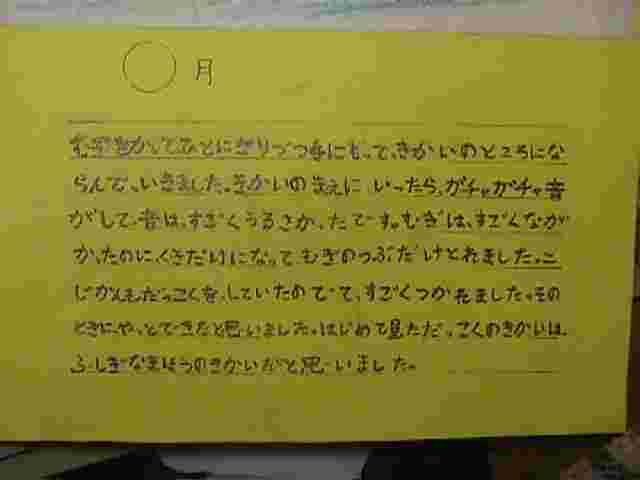 ○月
むぎをかってひとにぎりづつ手にもって、きかいのところにな
らんで、いきました。きかいのまえに いったら、ガチャガチャ音
がして、音は、すごくうるさかったです。むぎは、すごくなが
かったのに、くきだけになって むぎのつぶだけとれました。二
じかんもだっこくを、していたのでて、すごくつかれました。その
ときにやっとできたと思いました。はじめて見ただっこくのきかいは、
ふしぎなまほうのきかいだと思いました。